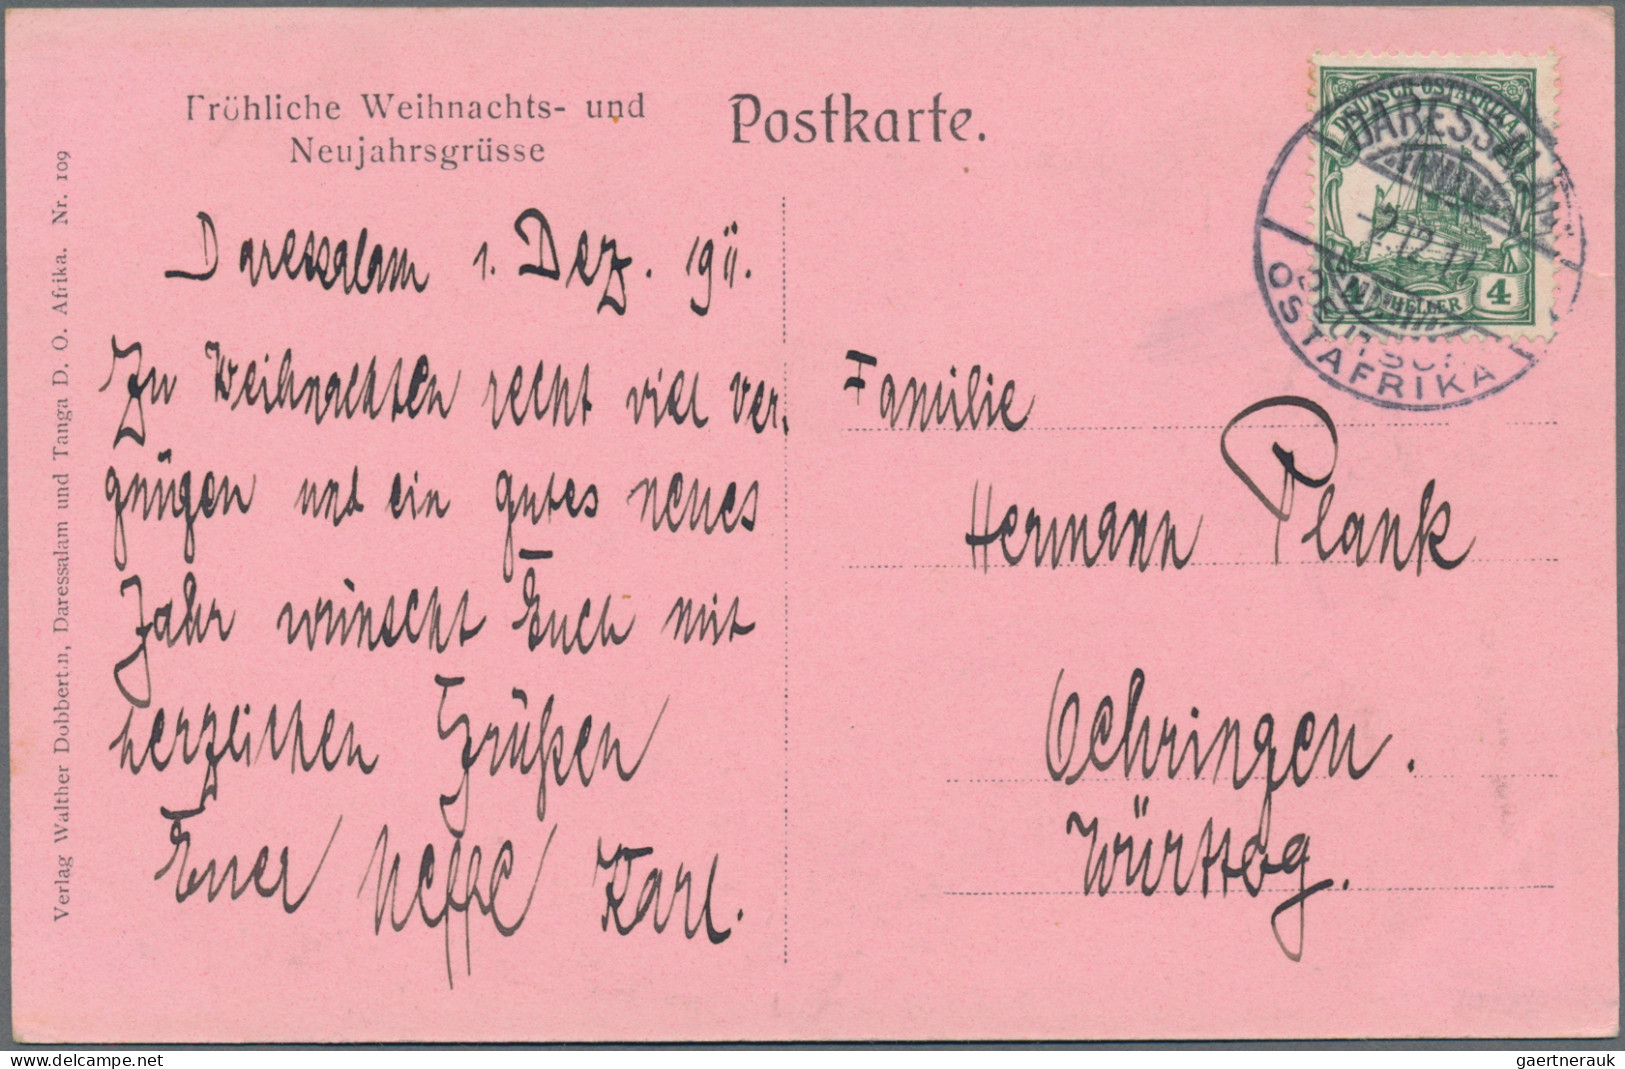 Fröhliche Weihnachts- und
Neujahrsgrüsse
Postkarte.
DEUTSCH-OSTAFRIKA
4 HELLER 4
DARESSALAM
-2.12.11
DEUTSCH
OSTAFRIKA
Verlag Walther Dobbertin, Daressalam und Tanga D. O. Afrika. Nr. 109
Daressalam 1. Dez. 1911.
Zu Weihnachten recht viel Ver-
gnügen und ein gutes neues
Jahr wünscht Euch mit
herzlichen Grüßen
Euer Neffe Karl.
Familie
Hermann Plank
Oehringen.
Württbg.
delcampe.net
gaertnerauk